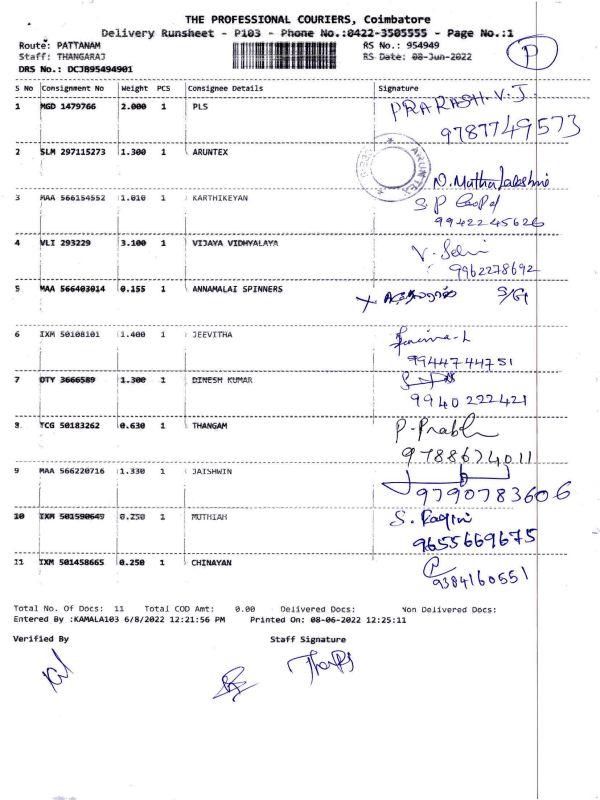 THE PROFESSIONAL COURIERS, Coimbatore
Delivery Runsheet - P103 - Phone No.:0422-3505555 - Page No.:1
Route: PATTANAM RS No.: 954949
Staff: THANGARAJ RS Date: 08-Jun-2022
DRS No.: DCJB95494901
P
S No Consignment No Weight PCS Consignee Details Signature
1 MGD 1479766 2.000 1 PLS PRAKASH.V.J.
9787749573
2 SLM 297115273 1.300 1 ARUNTEX
ARUNTEX
N. Muthu Lakshmi
3 MAA 566154552 1.010 1 KARTHIKEYAN S P
9942245626
4 VLI 293229 3.100 1 VIJAYA VIDHYALAYA V. Selvi
9962278692
5 MAA 566403014 0.155 1 ANNAMALAI SPINNERS S/G
6 IXM 50108101 1.400 1 JEEVITHA
9944744751
7 OTY 3666589 1.300 1 DINESH KUMAR
9940222421
8 TCG 50183262 0.630 1 THANGAM P-Prabh
9788674011
9 MAA 566220716 1.330 1 JAISHWIN
9790783606
10 IXM 501590649 0.250 1 MUTHIAH S. Ragini
9655669675
11 IXM 501458665 0.250 1 CHINAYAN
9384160551
Total No. Of Docs: 11 Total COD Amt: 0.00 Delivered Docs: Non Delivered Docs:
Entered By :KAMALA103 6/8/2022 12:21:56 PM Printed On: 08-06-2022 12:25:11
Verified By Staff Signature